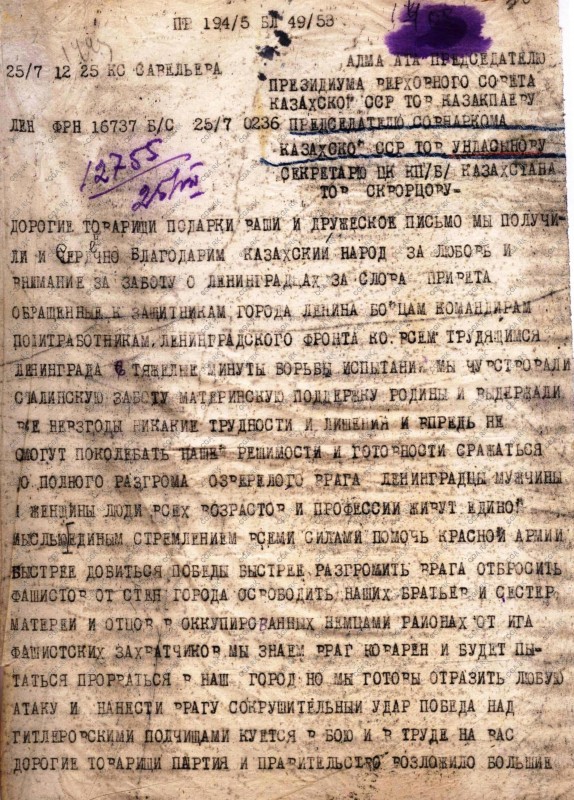 ПР 194/5 БЛ 49/53
25/7 12 25 КС САВЕЛЬЕВА
АЛМА АТА ПРЕДСЕДАТЕЛЮ
ПРЕЗИДИУМА ВЕРХОВНОГО СОВЕТА
КАЗАХСКОЙ ССР ТОВ КАЗАКПАЕВУ
ЛЕН ФРН 16737 Б/С 25/7 0236 ПРЕДСЕДАТЕЛЮ СОВНАРКОМА
КАЗАХСКОЙ ССР ТОВ УНДАСЫНОВУ
12755
СЕКРЕТАРЮ ЦК КП/Б/ КАЗАХСТАНА
ТОВ СКВОРЦОВУ-
25/VII
ДОРОГИЕ ТОВАРИЩИ ПОДАРКИ ВАШИ И ДРУЖЕСКОЕ ПИСЬМО МЫ ПОЛУЧИ-
ЛИ И СЕРДЕЧНО БЛАГОДАРИМ КАЗАХСКИЙ НАРОД ЗА ЛЮБОВЬ И
ВНИМАНИЕ ЗА ЗАБОТУ О ЛЕНИНГРАДЦАХ ЗА СЛОВА ПРИВЕТА
ОБРАЩЕННЫЕ К ЗАЩИТНИКАМ ГОРОДА ЛЕНИНА БОЙЦАМ КОМАНДИРАМ
ПОЛИТРАБОТНИКАМ ЛЕНИНГРАДСКОГО ФРОНТА КО ВСЕМ ТРУДЯЩИМСЯ
ЛЕНИНГРАДА В ТЯЖЕЛЫЕ МИНУТЫ БОРЬБЫ ИСПЫТАНИЙ МЫ ЧУВСТВОВАЛИ
СТАЛИНСКУЮ ЗАБОТУ МАТЕРИНСКУЮ ПОДДЕРЖКУ РОДИНЫ И ВЫДЕРЖАЛИ
ВСЕ НЕВЗГОДЫ НИКАКИЕ ТРУДНОСТИ И ЛИШЕНИЯ И ВПРЕДЬ НЕ
СМОГУТ ПОКОЛЕБАТЬ НАШЕЙ РЕШИМОСТИ И ГОТОВНОСТИ СРАЖАТЬСЯ
ДО ПОЛНОГО РАЗГРОМА ОЗВЕРЕЛОГО ВРАГА ЛЕНИНГРАДЦЫ МУЖЧИНЫ
И ЖЕНЩИНЫ ЛЮДИ ВСЕХ ВОЗРАСТОВ И ПРОФЕССИЙ ЖИВУТ ЕДИНОЙ
МЫСЛЬЮ ЕДИНЫМ СТРЕМЛЕНИЕМ ВСЕМИ СИЛАМИ ПОМОЧЬ КРАСНОЙ АРМИИ
БЫСТРЕЕ ДОБИТЬСЯ ПОБЕДЫ БЫСТРЕЕ РАЗГРОМИТЬ ВРАГА ОТБРОСИТЬ
ФАШИСТОВ ОТ СТЕН ГОРОДА ОСВОБОДИТЬ НАШИХ БРАТЬЕВ И СЕСТЕР
МАТЕРЕЙ И ОТЦОВ В ОККУПИРОВАННЫХ НЕМЦАМИ РАЙОНАХ ОТ ИГА
ФАШИСТСКИХ ЗАХВАТЧИКОВ МЫ ЗНАЕМ ВРАГ КОВАРЕН И БУДЕТ ПЫ-
ТАТЬСЯ ПРОРВАТЬСЯ В НАШ ГОРОД НО МЫ ГОТОВЫ ОТРАЗИТЬ ЛЮБУЮ
АТАКУ И НАНЕСТИ ВРАГУ СОКРУШИТЕЛЬНЫЙ УДАР ПОБЕДА НАД
ГИТЛЕРОВСКИМИ ПОЛЧИЩАМИ КУЕТСЯ В БОЮ И В ТРУДЕ НА ВАС
ДОРОГИЕ ТОВАРИЩИ ПАРТИЯ И ПРАВИТЕЛЬСТВО ВОЗЛОЖИЛО БОЛЬШИЕ